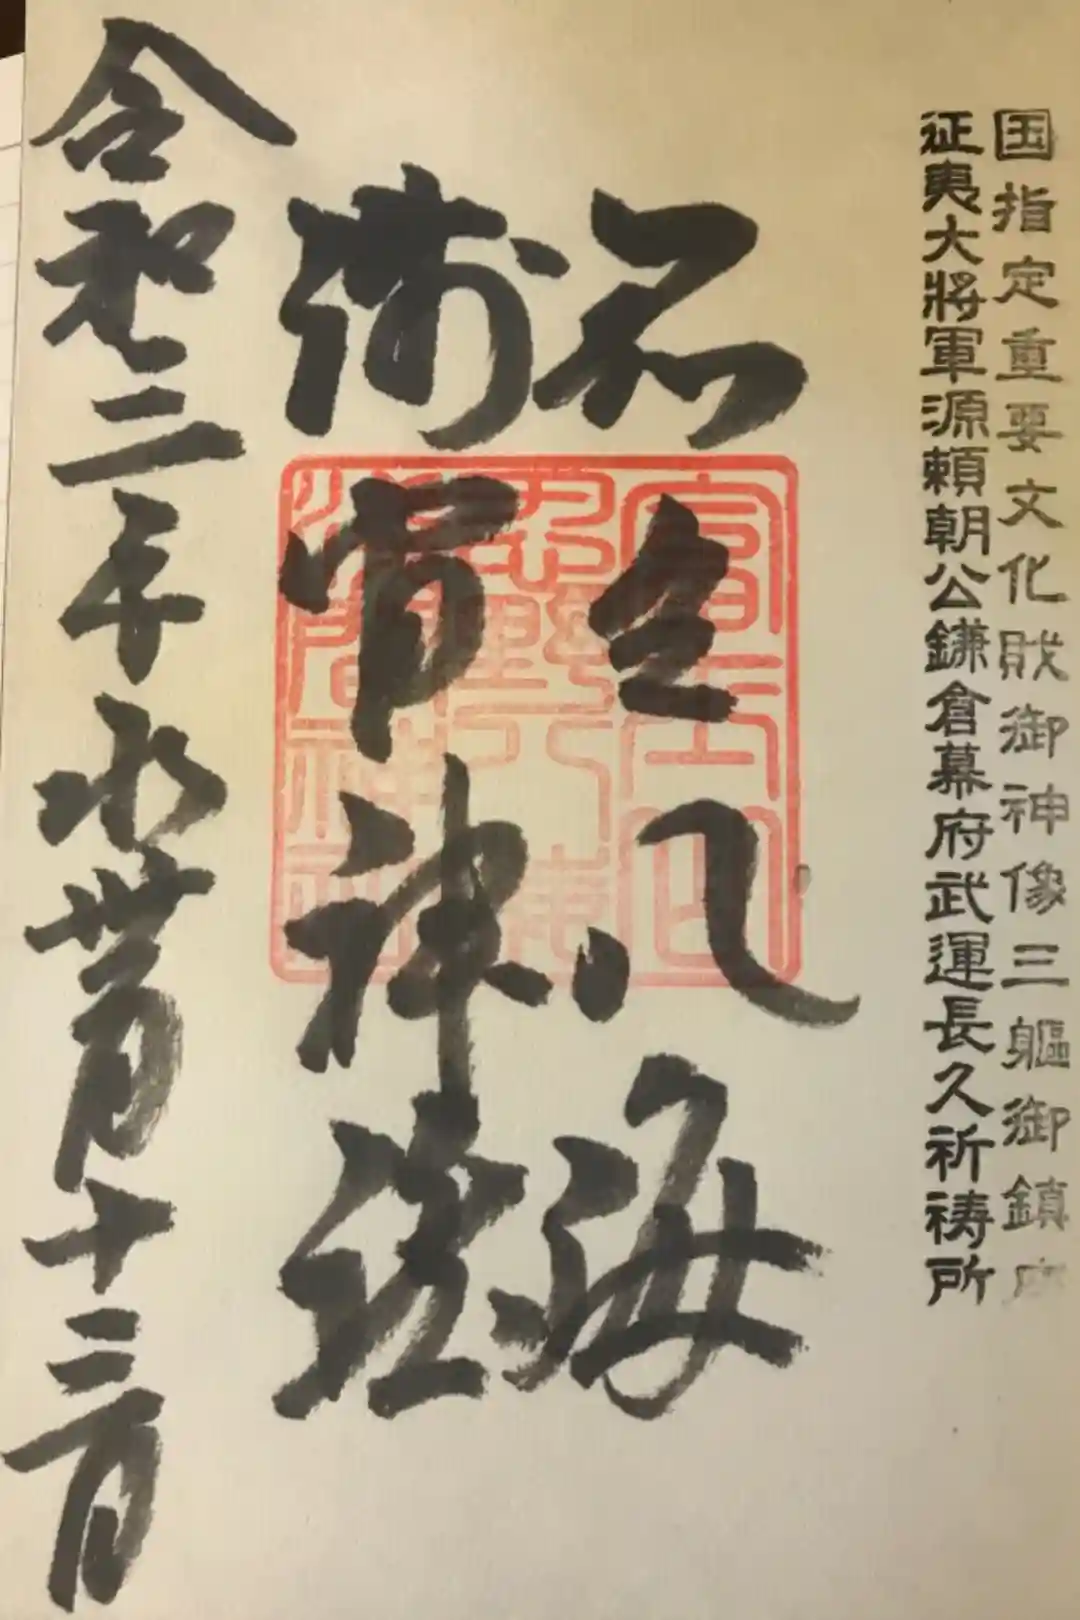 国指定重要文化財御神像三躯御鎮座
征夷大将軍源頼朝公鎌倉幕府武運長久祈祷所
八海
浅間神社
令和二年水無月十三日